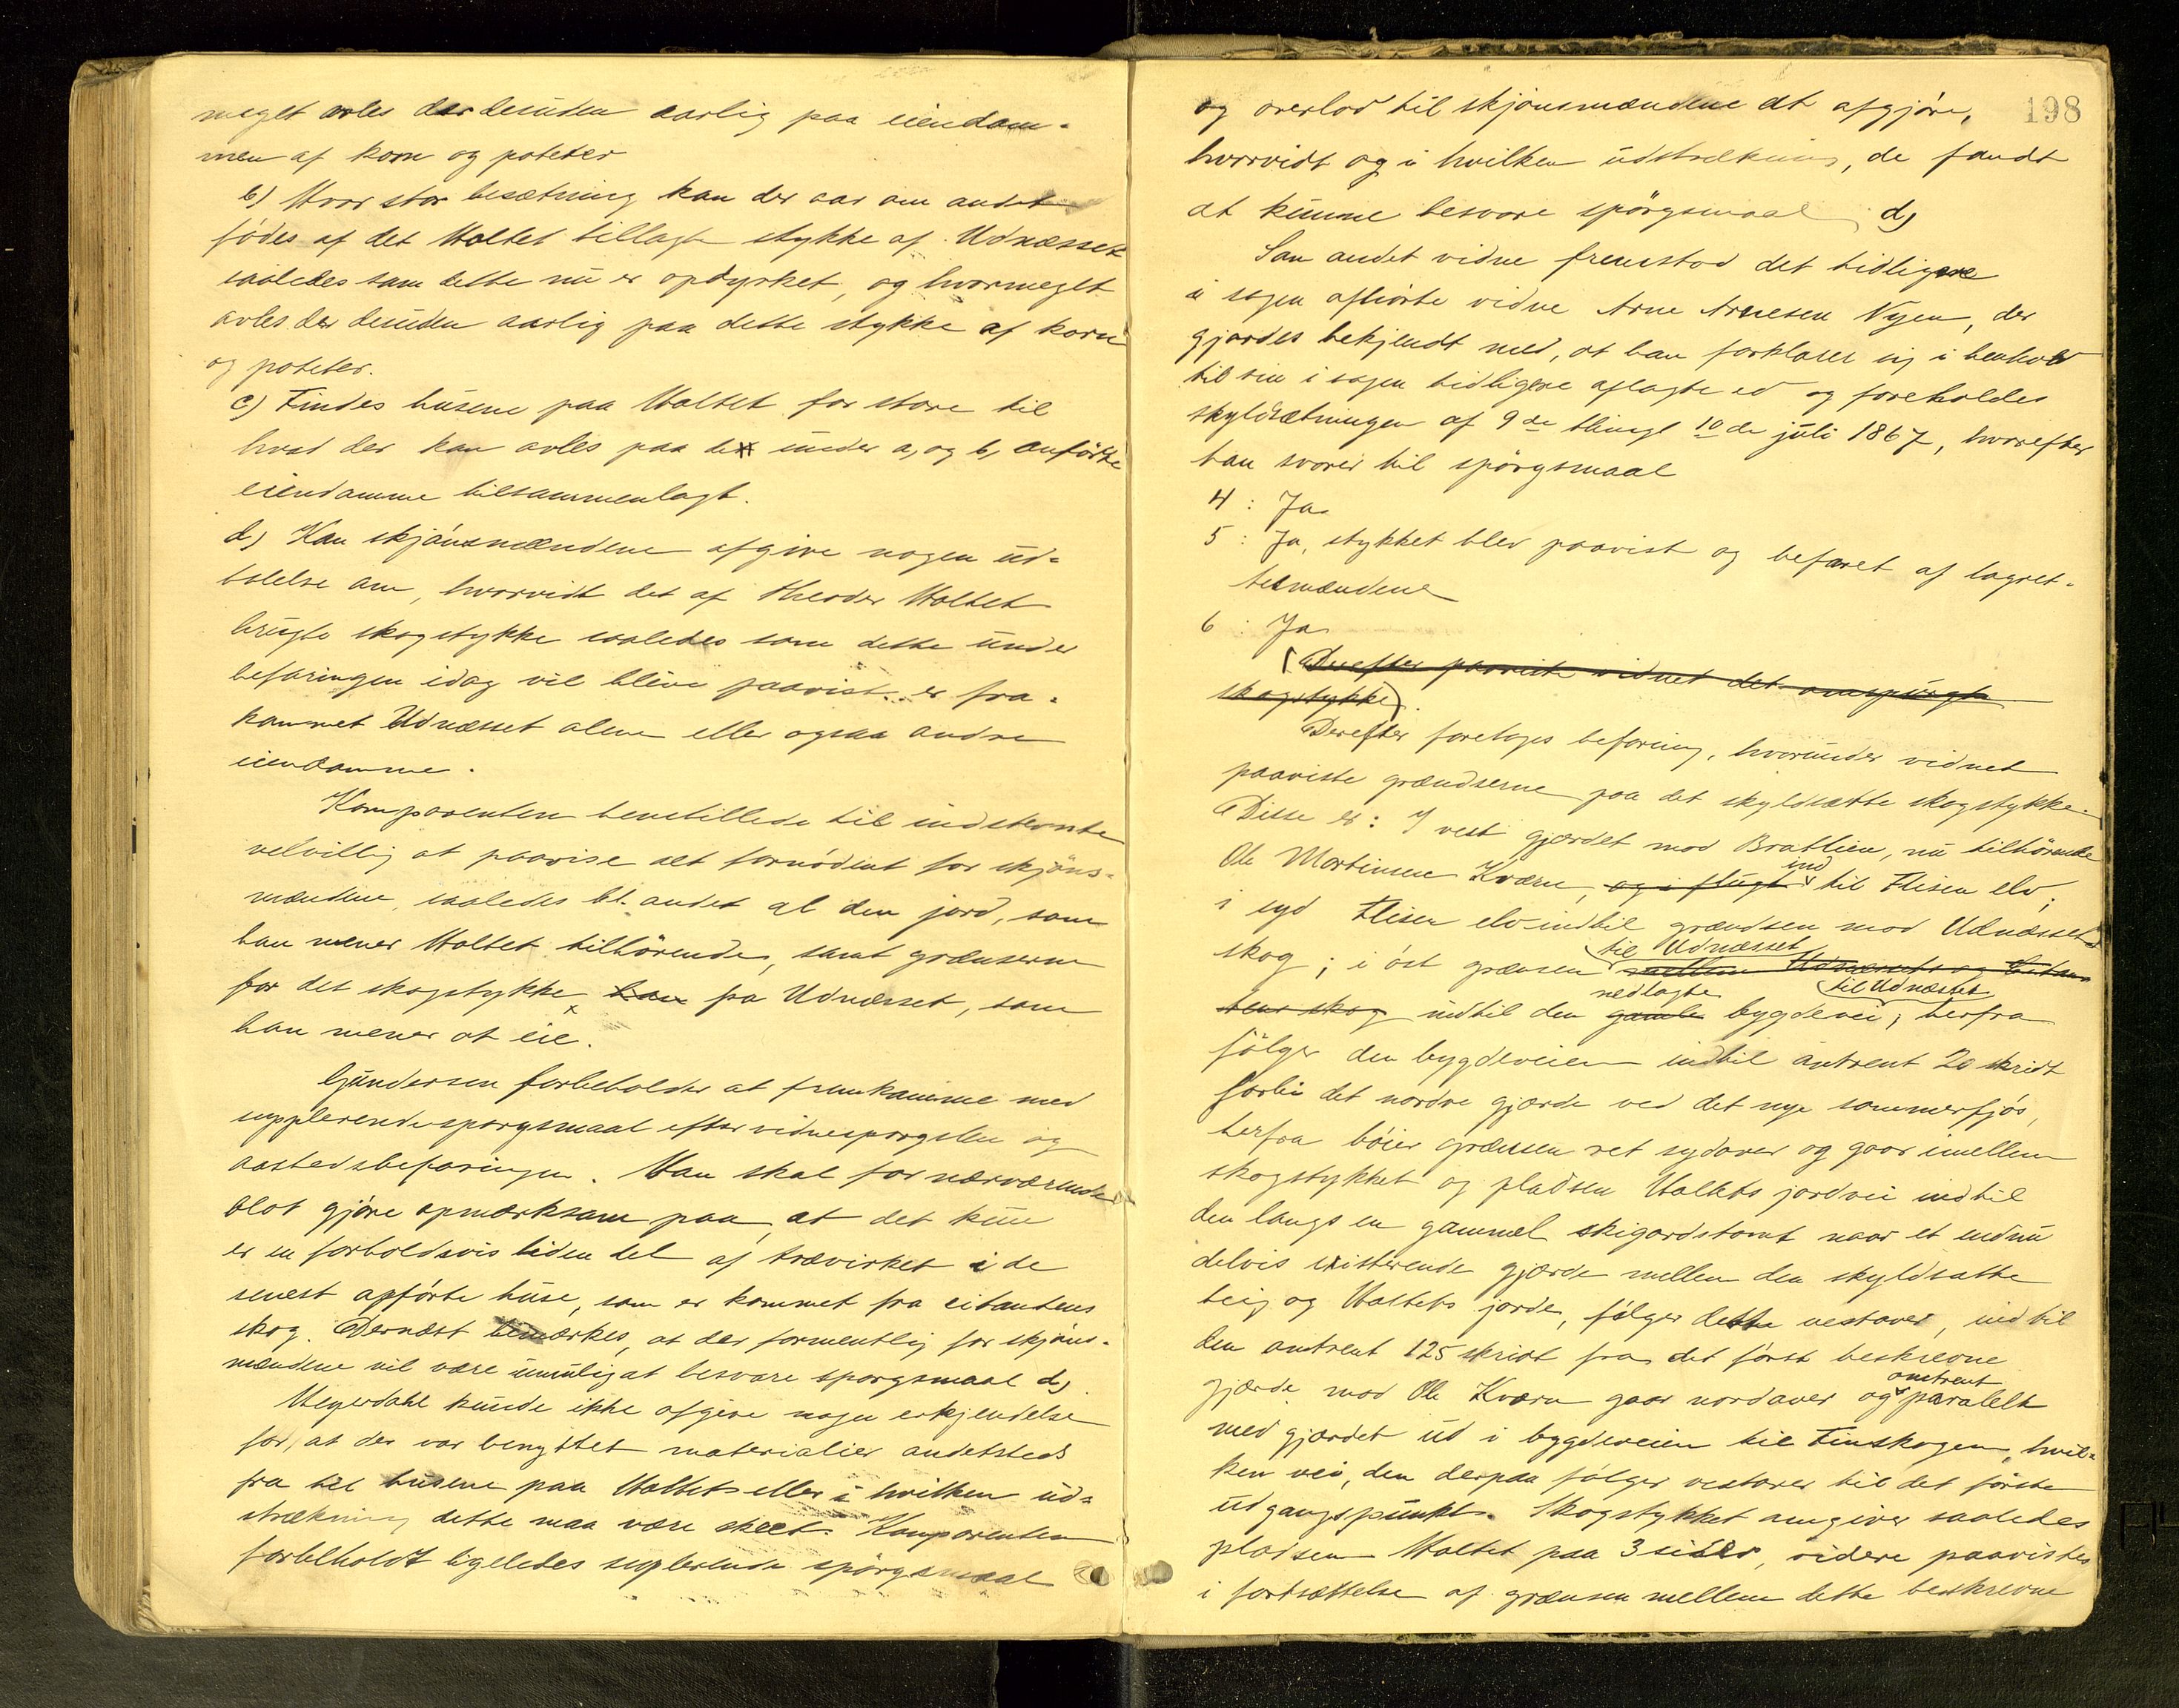 meget avles der desuden aarlig paa eiendom-
men af korn og poteter
b) Hvor stor besætning kan der aar om andet
fødes af det Holtet tillagte stykke af Udnæsset
saaledes som dette nu er opdyrket, og hvormeget
avles der desuden aarlig paa dette stykke af korn
og poteter.
c) Findes husene paa Holtet for store til
hvad der kan avles paa de under a, og b, anførte
eiendomme tilsammenlagt.
d) Kan skjønsmændene afgive nogen ud-
talelse om, hvorvidt det af Theodor Holtet
brugte skogstykke saaledes som dette under
befaringen idag vil blive paavist er fra-
kommet Udnæsset alene eller ogsaa andre
eiendomme.
Komparenten henstillede til indstevnte
velvillig at paavise alt fornødent for skjøns-
mændene, saaledes bl. andet al den jord, som
han mener Holtet tilhørende, samt grænserne
for det skogstykke han fra Udnæsset, som
han mener at eie.
Gundersen forbeholder at fremkomme med
supplerende spørgsmaal efter vidnesporgslen og
aastedsbefaringen. Han skal for nærværende
blot gjøre opmærksom paa, at det kun
er en forholdsvis liden del af trævirket i de
senest opførte huse, som er kommet fra citantens
skog. Dernæst bemærkes, at der formentlig for skjøns-
mændene vil være umuligat besvare sporgsmaal d)
Heyerdahl kunde ikke afgive nogen erkjendelse
for, at der var benyttet materialier andetsteds
fra til husene paa Holtet eller i hvilken ud-
strækning dette maa være skeet. Komparenten
forbeholdt ligeledes suplerende spørgsmaal
198
og overlod til skjønsmændene at afgjøre,
hvorvidt og i hvilken udstrækning, de fandt
at kunne besvare spörgsmaal d)
Som andet vidne fremstod det tidligere
i sagen afhørte vidne Arne Arnesen Nyen, der
gjordes bekjendt med, at han forklarer sig i henhold
til sin i sagen tidligere aflagte ed og foreholdes
skyldsætningen af 9de thingl 10de juli 1867, hvorefter
han svarer til spörgsmaal
4 : Ja
5 : Ja, stykket blev paavist og befaret af lagret-
tesmændene
6 : Ja
(Derefter paaviste vidnet det omspurgte
skogstykke).
Derefter foretoges befaring, hvorunder vidnet
paaviste grændserne paa det skyldsatte skogstykke.
Disse er: I vest gjærdet mod Bratlien, nu tilhørende
Ole Martinsen Kværn, og i flugt ind til Flisen elv,
i syd Flisen elv indtil grændsen mod Udnæssets
skog; i øst grænsen til Udnæsset mellem Udnæssets og Citan-
tens skog indtil den gamle nedlagte bygdevei til Udnæsset, herfra
fölger den bygdeveien indtil omtrent 20 skridt
forbi det nordre gjærde ved det nye sommerfjös,
herfra böier grænsen ret sydover og gaar imellem
skogstykket og pladsen Holtets jordvei indtil
den langs en gammel skigardstomt naar et endnu
delvis existerende gjærde mellem den skyldsatte
teig og Holtets jorde, følger dette vestover, indtil
den omtrent 125 skridt fra det først beskrevne
gjærde mod Ole Kværn gaar nordover og omtrent paralelt
med gjærdet ud i bygdeveien til Finskogen, hvil-
ken vei, den derpaa fölger vestover til det første
udgangspunkt. Skogstykket omgiver saaledes
pladsen Holtet paa 3 sider, videre paavistes
i fortsættelse af grænsen mellem dette beskrevne